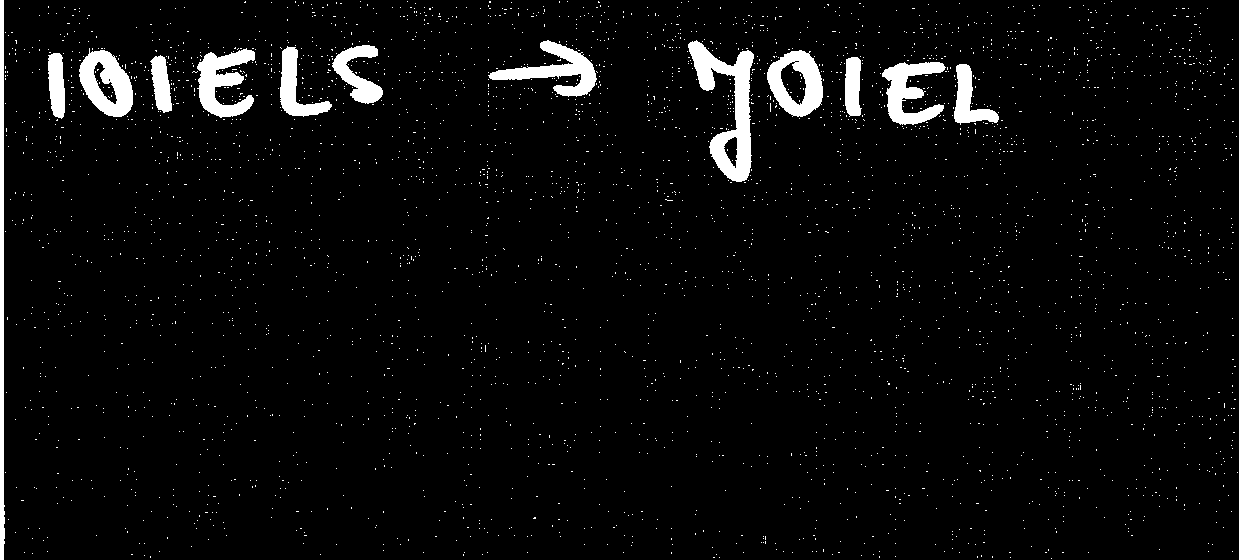 IOIELS → YOIEL